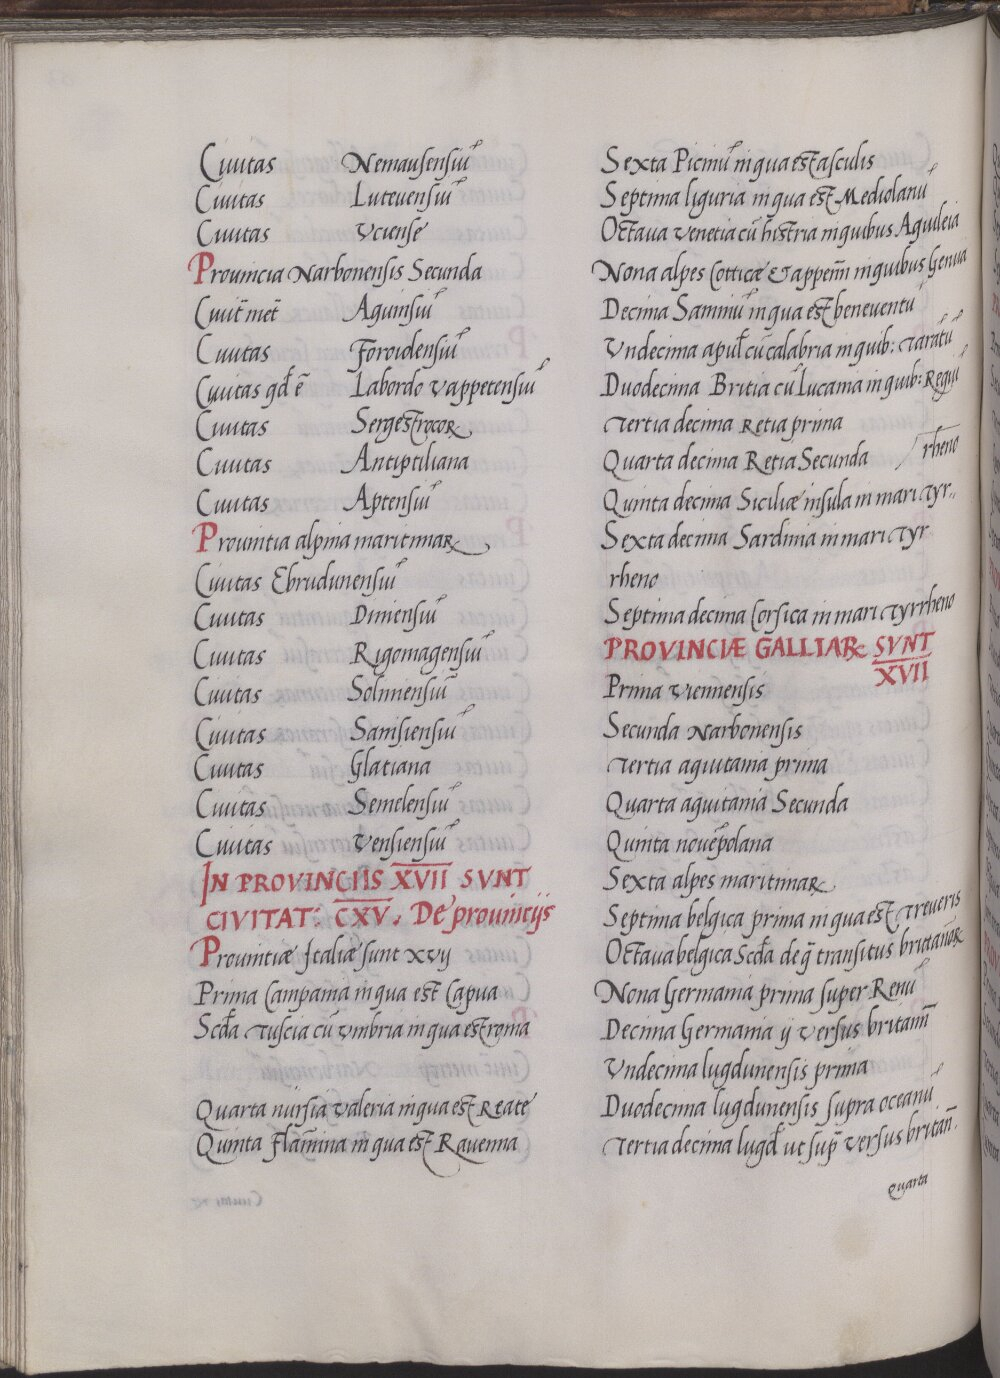 Ciuitas Nemausensiū
Ciuitas Luteuensiū
Ciuitas Vciense
Prouincia Narbonensis Secunda
Ciuit̄ met̄ Aquinsiū
Ciuitas Foroidensiū
Ciuitas qd̄ ē Labordo vappetensiū
Ciuitas Sergestrocoꝝ
Ciuitas Antiptiliana
Ciuitas Aptensiū
Prouintia alpina maritimaꝝ
Ciuitas Ebrudunensiū
Ciuitas Diniensiū
Ciuitas Rigomagensiū
Ciuitas Soliniensiū
Ciuitas Sanisiensiū
Ciuitas Glatiana
Ciuitas Semelensiū
Ciuitas Vensiensiū
IN PROVINCIIS XVII SVNT
CIVITAT: CXV. De prouintijs
Prouintiæ Italiæ sunt xvij
Prima Campania in qua est Capua
Scd̄a Tuscia cū vmbria in qua est roma
Quarta nursia valeria in qua est Reate
Quinta Flam̄inia in qua est Rauenna
Sexta Picinū in qua est asculis
Septima liguria in qua est Mediolanū
Octaua venetia cū histria in quibus Aquileia
Nona alpes Cotticæ & appenīn in quibus Genua
Decima Samniū in qua est beneuentū
Vndecima apul̄ cū calabria in quib: Tarātū
Duodecima Britia cū lucania in quib: Regiū
Tertia decima Retia prima
Quarta decima Retia Secunda
rheno
Quinta decima Siciliæ insula in mari Tyr..
Sexta decima Sardinia in mari Tyr
rheno
Septima decima Corsica in mari Tyrrheno
PROVINCIÆ GALLIAꝝ SVNT
XVII
Prima Viennensis
Secunda Narbonensis
Tertia aquitania prima
Quarta aquitania Secunda
Quinta nouēpolana
Sexta alpes maritimaꝝ
Septima belgica prima in qua est Treueris
Octaua belgica Scd̄a de q̄ transitus britaniāꝝ
Nona Germania prima super Renū
Decima Germania ij versus britanīn
Vndecima lugdunensis prima
Duodecima lugdunensis supra oceanū
Tertia decima lugd̄ ut sup̄ versus britan̄.
Quarta